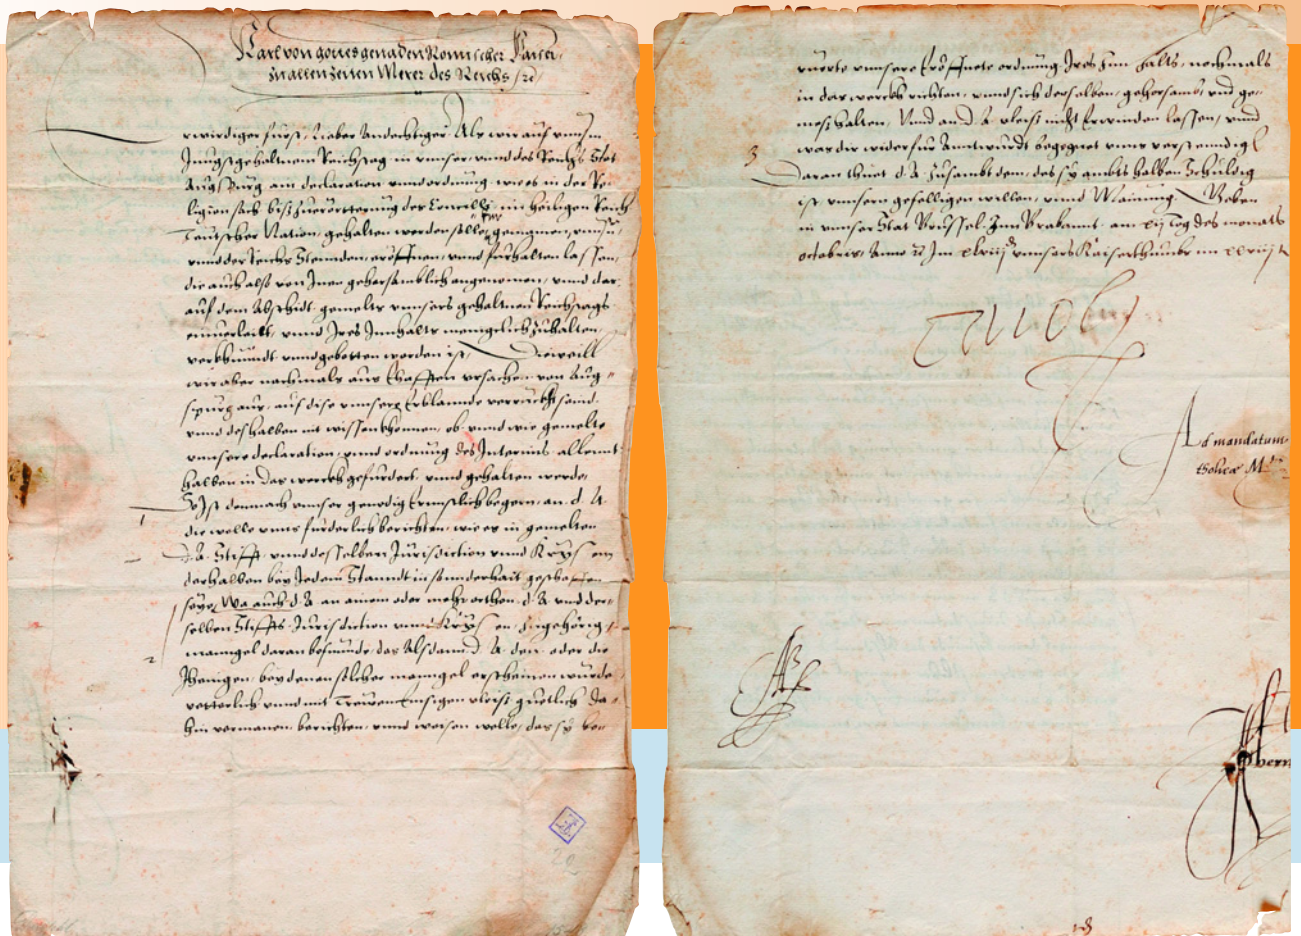 Karl von gottes genaden Römischer Kaiser,
zu allen zeiten Merer des Reichs /rc/
Erwirdiger fürst, lieber Andechtiger, Als wir auf unnserm
Jungstgehaltnem Reichstag in unnser unnd des Reichs Stat
Augspurg ain declaration unnd ordnung, wie es in der Re-
ligion sach biß zu erörtterung des Concilii, im heiligen Reich
Teutscher Nation, gehalten werden solle, genomen,
unnd des Reichs Stennden, eröffnen, unnd fürhalten lassen,
die auch also von Inen gehorsamblich angenomen, unnd dar-
auf dem Abschidt gemelts unnsers gehaltnen Reichstags
einverleibt, unnd Ires Innhalts menigclich zuhalten
verkhundt unnd gebotten worden ist, Dieweill
wir aber nachmals aus Ehafften ursachen von Aug-
spurg aus, auf dise unnsere Erblannde verruckht seind,
unnd deshalben nit wissen khonnen, ob unnd wie gemelte
unnsere declaration, unnd ordnung des Interims allennt-
halben in das werckh gefurdert, unnd gehalten werde,
So Ist demnach unnser genedig Ernnstlich begern, an d. A.
die welle unns furderlich berichten, wie es in gemelten
d. A. Stifft, unnd desselben Jurisdiction unnd Kryssem
derhalben bey Jedem Stanndt in sonnderhait geschaffen
seye, Wa auch d. A. an ainem oder mehr orthen, d. A. und der-
selben Stiffts Jurisdiction unnd Kryssem, zugehörig
manngel daran befunde, das Alsdann d. A. den oder die
Jhenigen, bey denen sollicher manngel erscheinen wurde,
vatterlich unnd mit Trewem Emsigen vleiss, guetlich da-
hin vermanen, berichten, unnd weisen welle, das sy be-
ruerte unnsere Eröffnete ordnung, Ires Inn halts, nochmals
in das werckh richten, unnd sich derselben, gehorsamb, und ge-
mess halten, Unnd an d. A. vleiss nicht Erwinden lassen, unnd
was dir widerfür Anntwurdt begegnet unns verstenndig
Daran thuet d. A. zusambt dem, des sy ambts halben Schuldig
ist unnsern gefelligen willen, unnd Mainung. Geben
in unnser Stat Brüssel Inn Brabannt, am tag des monats
octobris, Anno rc Im xlviij unnsers Kaiserthumbs im xxviij
Carolus
Ad mandatum
1
2
3